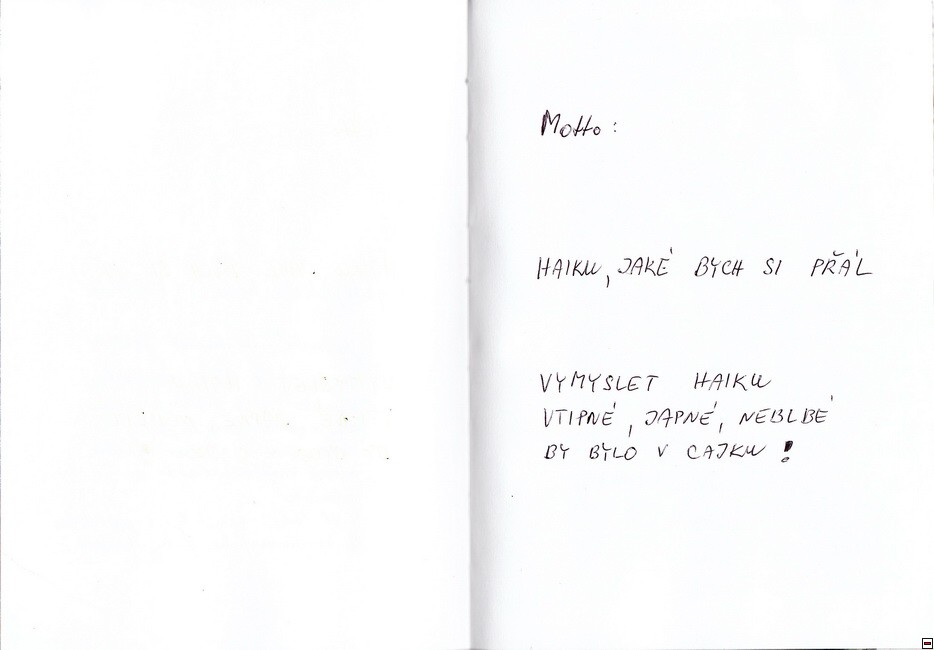 Motto:
HAIKU, JAKÉ BYCH SI PŘÁL
VYMYSLET HAIKU
VTIPNÉ, JAPNÉ, NEBLBÉ
BY BYLO V CAJKU!